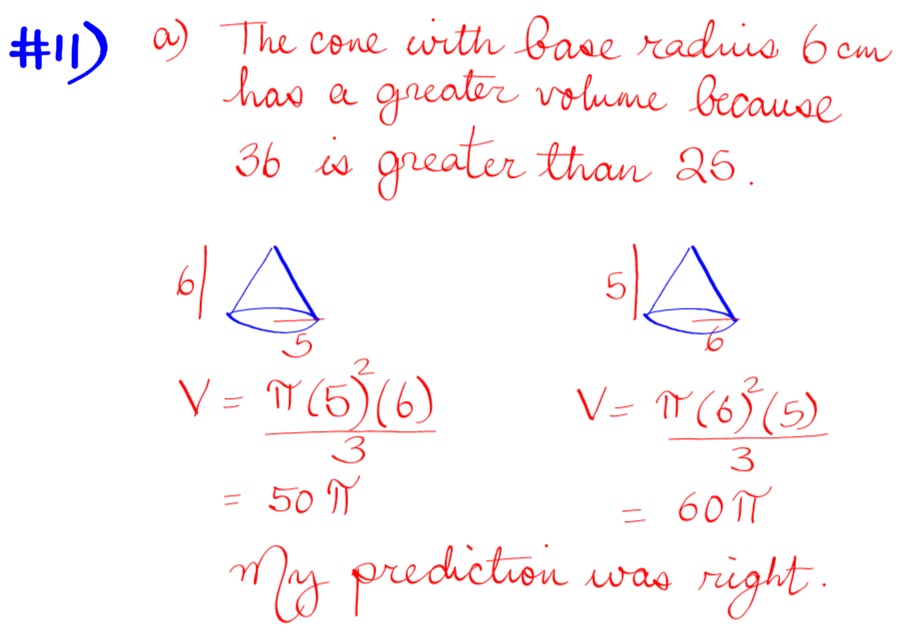 #11) a) The cone with base radius 6 cm
has a greater volume because
36 is greater than 25.
6
5
V = π(5)²(6)
3
= 50π
5
6
V = π(6)²(5)
3
= 60π
My prediction was right.